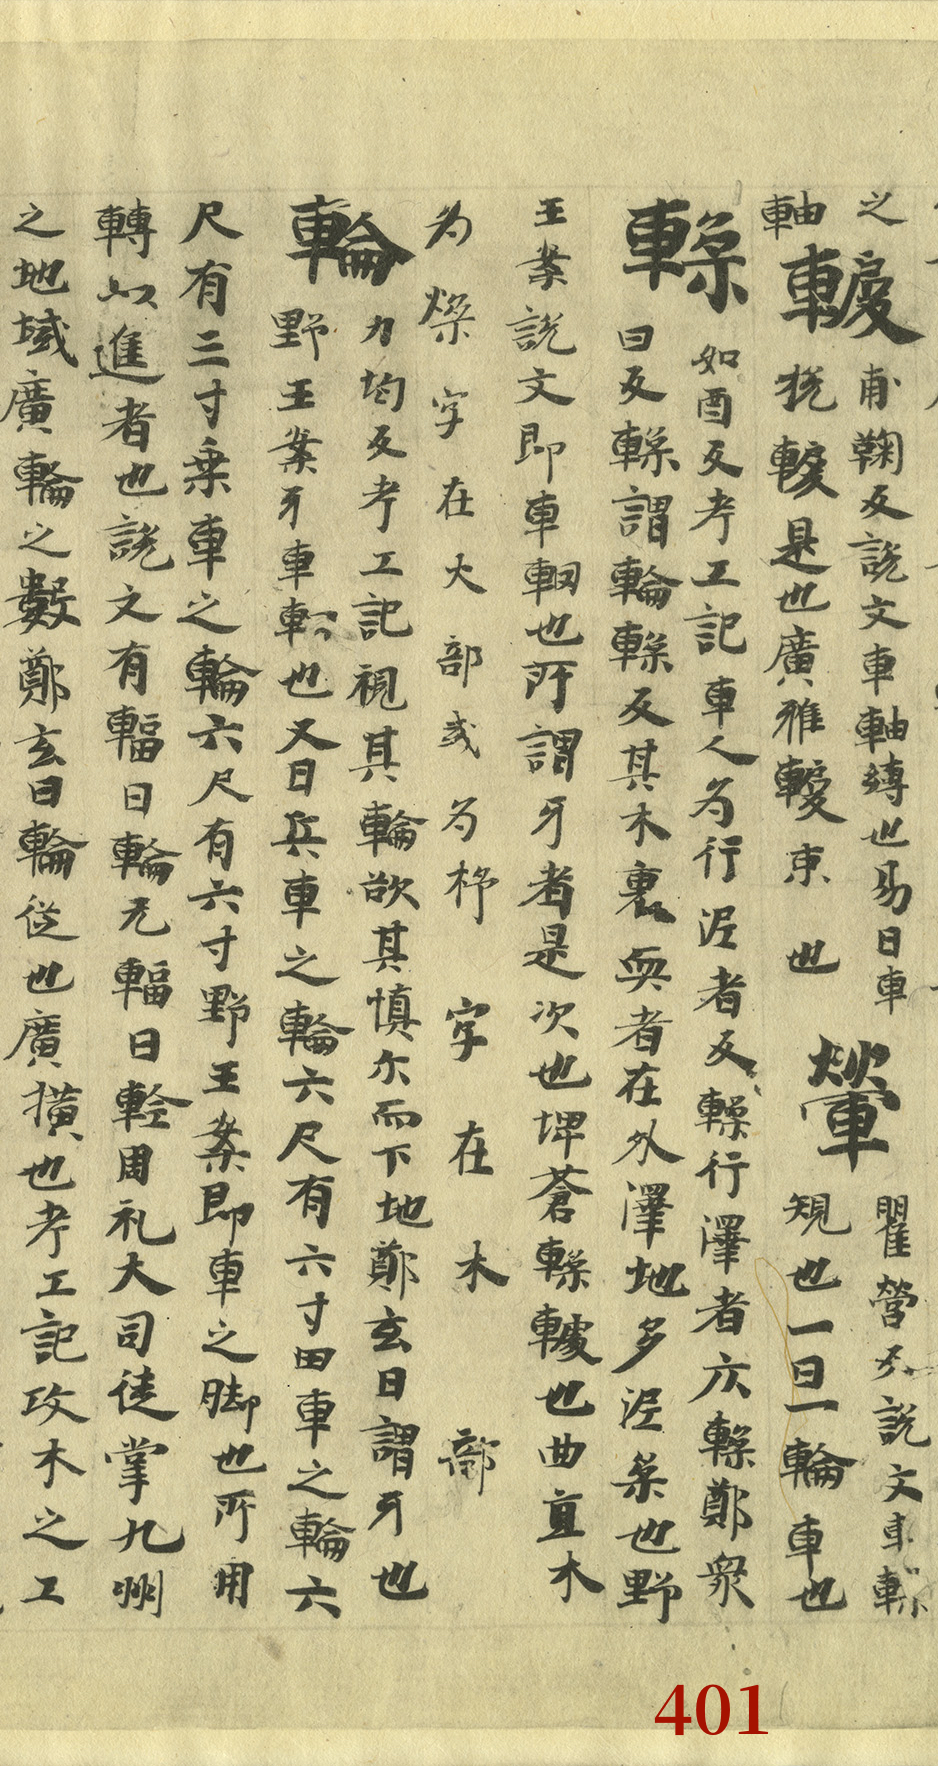 之
䡣甫鞠反說文車軸縛也易曰車
軸挩䡣是也廣雅䡣束也
䡬瞿營反說文車輮
䂓也一曰一輪車也
輮如酉反考工記車人为行泥者反輮行澤者庂輮鄭衆
曰反輮謂輪輮反其木裏需者在外澤地多泥柔也野
王案說文即車輞也所謂牙者是次也埤蒼輮轅也曲直木
为煣字在火部或为杼字在木部
輪力均反考工記視其輪欲其慎尔而下地鄭玄曰謂牙也
野王案牙車輮也又曰兵車之輪六尺有六寸田車之輪六
尺有三寸乗車之輪六尺有六寸野王案即車之脚也所用
轉以進者也說文有輻曰輪无輻曰輇周礼大司徒掌九州
之地域廣輪之數鄭玄曰輪従也廣橫也考工記攻木之工
401